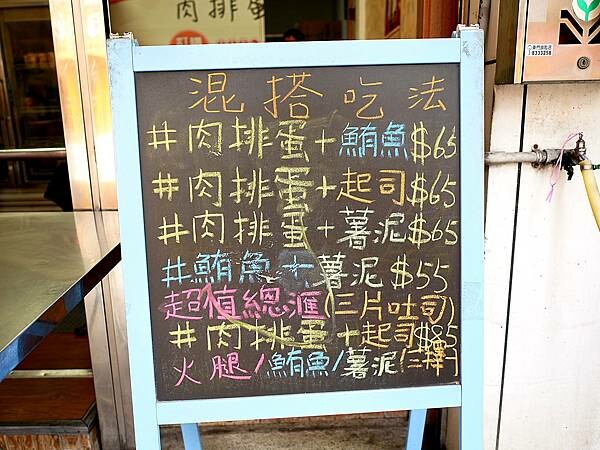 肉排蛋
混搭吃法
#肉排蛋+鮪魚$65
#肉排蛋+起司$65
#肉排蛋+薯泥$65
#鮪魚+薯泥$55
超值總滙(三片吐司)
#肉排蛋+起司$85
火腿/鮪魚/薯泥(三擇一)
8333258